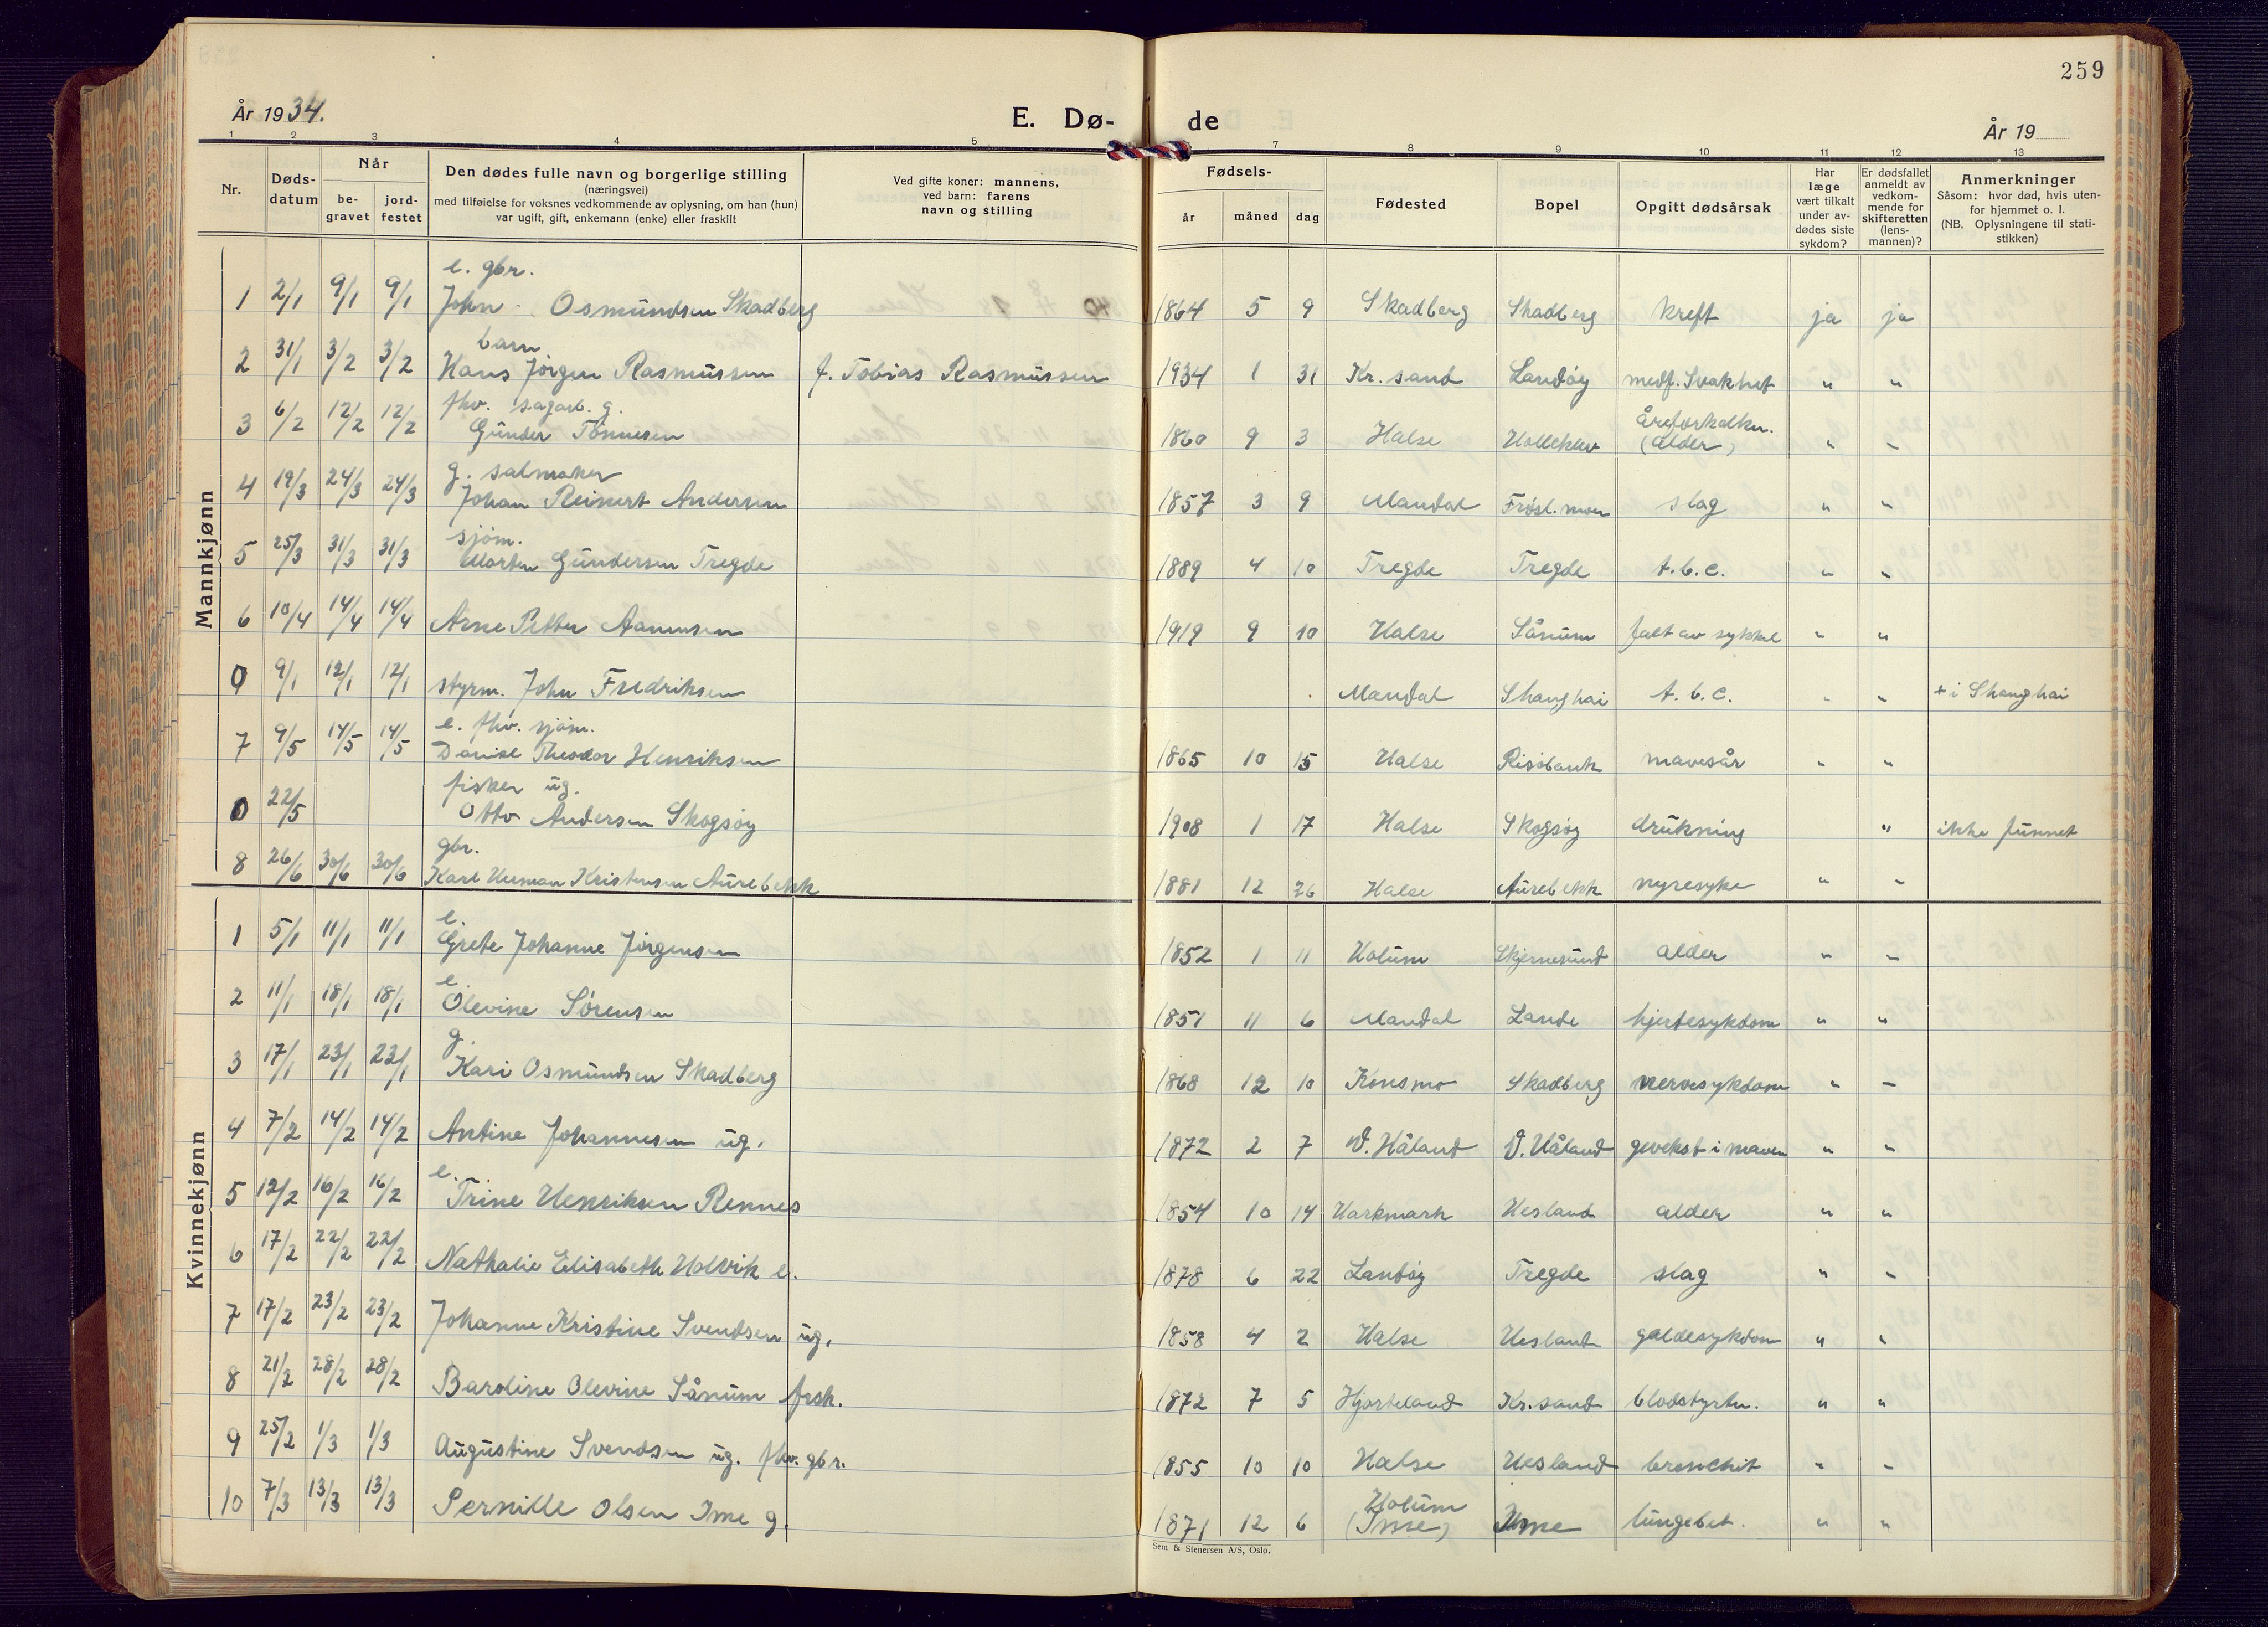 259
År 1934.
E. Dø-
de
År 19
1 2 3 4 5 7 8 9 10 11 12 13
Nr.
Døds-
datum
Når
be-
gravet
jord-
festet
Den dødes fulle navn og borgerlige stilling
(næringsvei)
med tilføielse for voksnes vedkommende av oplysning, om han (hun)
var ugift, gift, enkemann (enke) eller fraskilt
Ved gifte koner: mannens,
ved barn: farens
navn og stilling
Fødsels-
år
måned
dag
Fødested
Bopel
Opgitt dødsårsak
Har
læge
vært tilkalt
under av-
dødes siste
sykdom?
Er dødsfallet
anmeldt av
vedkom-
mende for
skifteretten
(lens-
mannen)?
Anmerkninger
Såsom: hvor død, hvis uten-
for hjemmet o. l.
(NB. Oplysningene til stati-
stikken)
Mannkjønn
e. gbr.
1 2/1 9/1 9/1 John Osmundsen Skadberg 1864 5 9 Skadberg Skadberg kreft ja ja
barn
2 31/1 3/2 3/2 Hans Jørgen Rasmussen f. Tobias Rasmussen 1934 1 31 Kr. sand Landøy medf. Svakhet " "
fhv. sagarb. g. Åreforkalkn.
3 6/2 12/2 12/2 Gunder Tønnesen 1860 9 3 Halse (alder) " "
g. salmaker
4 19/3 24/3 24/3 Johan Reinert Andersen 1857 3 9 Mandal Frøsl. moen slag " "
sjøm.
5 25/3 31/3 31/3 Morten Gundersen Tregde 1889 4 10 Tregde Tregde t.b.c. " "
6 10/4 14/4 14/4 Arne Petter Aanensen 1919 9 10 Halse Sånum falt av sykkel " "
0 9/1 12/1 12/1 styrm. John Fredriksen Mandal Shanghai t.b.c. " " + i Shanghai
e. fhv. sjøm.
7 9/5 14/5 14/5 Daniel Theodor Henriksen 1865 10 15 Halse Risøbank mavesår " "
fisker ug.
0 22/5 Otto Andersen Skogsøy 1908 1 17 Halse Skogsøy drukning " ikke funnet
gbr.
8 26/6 30/6 30/6 Karl Herman Kristensen Aurebekk 1881 12 26 Halse Aurebekk nyresyke " "
Kvinnekjønn
e.
1 5/1 11/1 11/1 Grete Johanne Jørgensen 1852 1 11 Holum Skjernesund alder " "
e.
2 11/1 18/1 18/1 Olevine Sørensen 1851 11 6 Mandal Lande hjertesykdom " "
g.
3 17/1 23/1 23/1 Kari Osmundsen Skadberg 1868 12 10 Konsmo Skadberg nervesykdom " "
4 7/2 14/2 14/2 Antine Johannesen ug. 1872 2 7 V. Håland V. Håland gevekst i maven " "
e.
5 12/2 16/2 16/2 Trine Henriksen Rennes 1854 10 14 Harkmark Hesland alder " "
6 17/2 22/2 22/2 Nathalie Elisabeth Holvik e. 1878 6 22 Landøy Tregde slag " "
7 17/2 23/2 23/2 Johanne Kristine Svendsen ug. 1858 4 2 Halse Hesland galdesykdom " "
8 21/2 28/2 28/2 Baroline Olevine Sånum frsk. 1872 7 5 Hjorteland Kr. sand blodstyrtn. " "
9 25/2 1/3 1/3 Augustine Svendsen ug. fhv. gbr. 1855 10 10 Halse Hesland bronchit " "
Holum
10 7/3 13/3 13/3 Pernille Olsen Ime g. 1871 12 6 (Ime) Ime lungebet. " "
Sem & Stenersen A/S, Oslo.